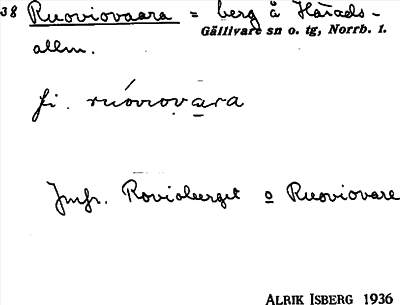 38 Ruoviovaara = berg å Härads-
Gällivare sn o. tg, Norrb. l.
allm.
fi. rúoviovara
Jmfr. Rovioberget o Ruoviovare
ALRIK ISBERG 1936